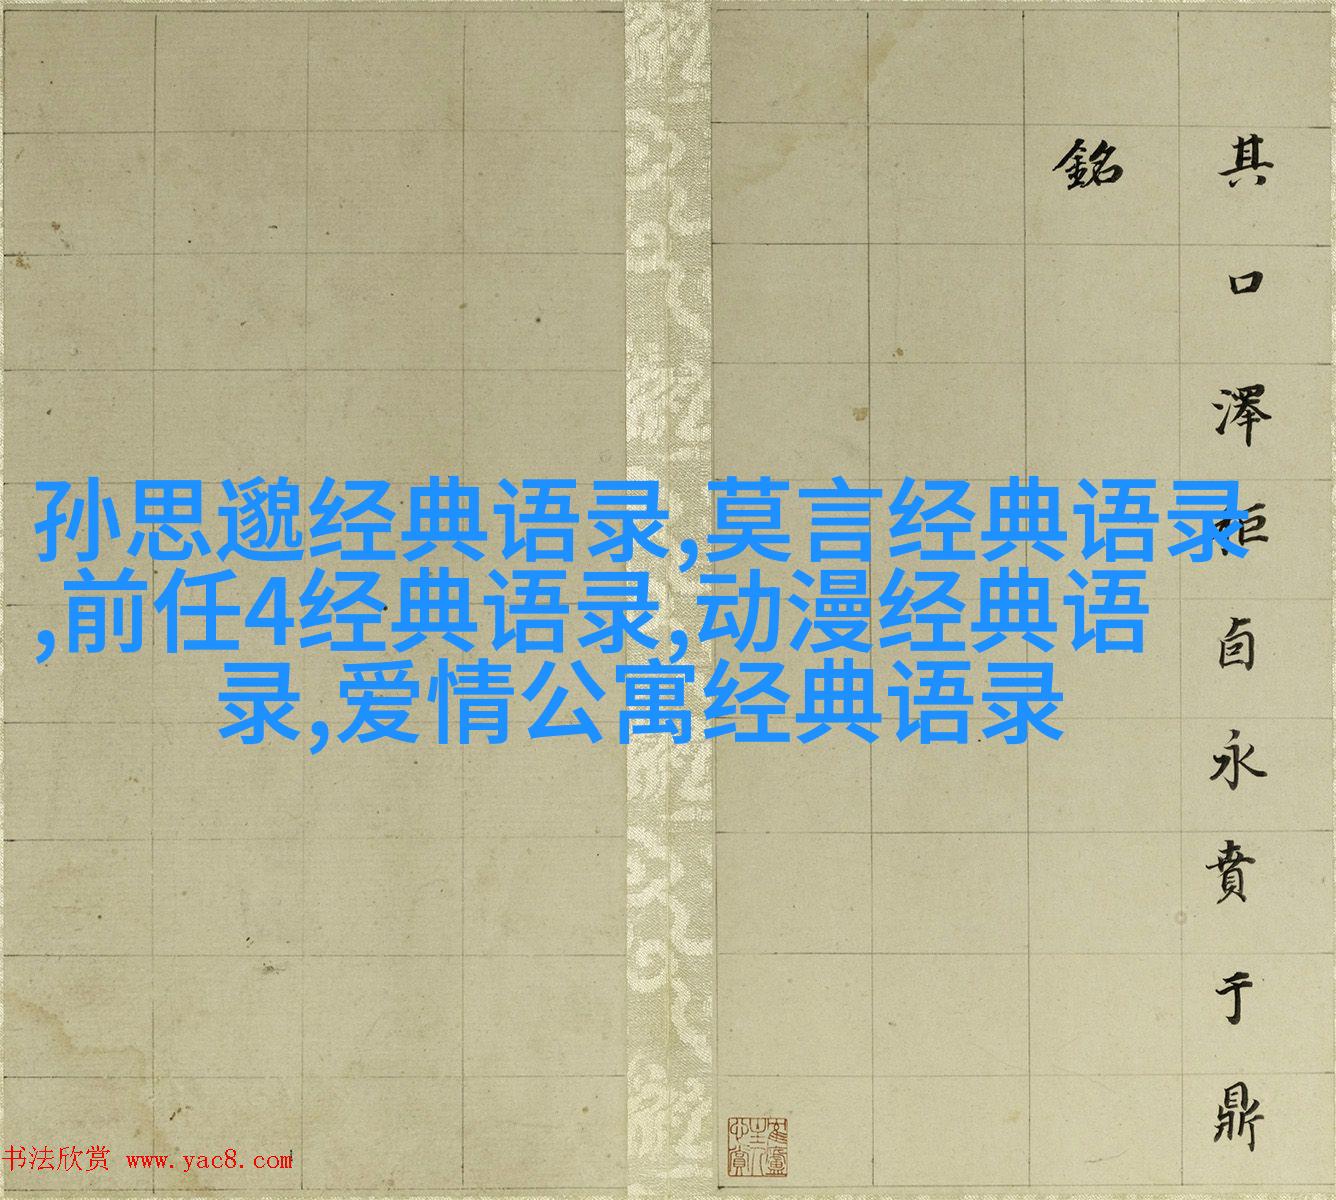 其口澤卣永賁于鼎
銘
孙思邈经典语录,莫言经典语录
,前任4经典语录,动漫经典语
录,爱情公寓经典语录
书法欣赏 www.yac8.com